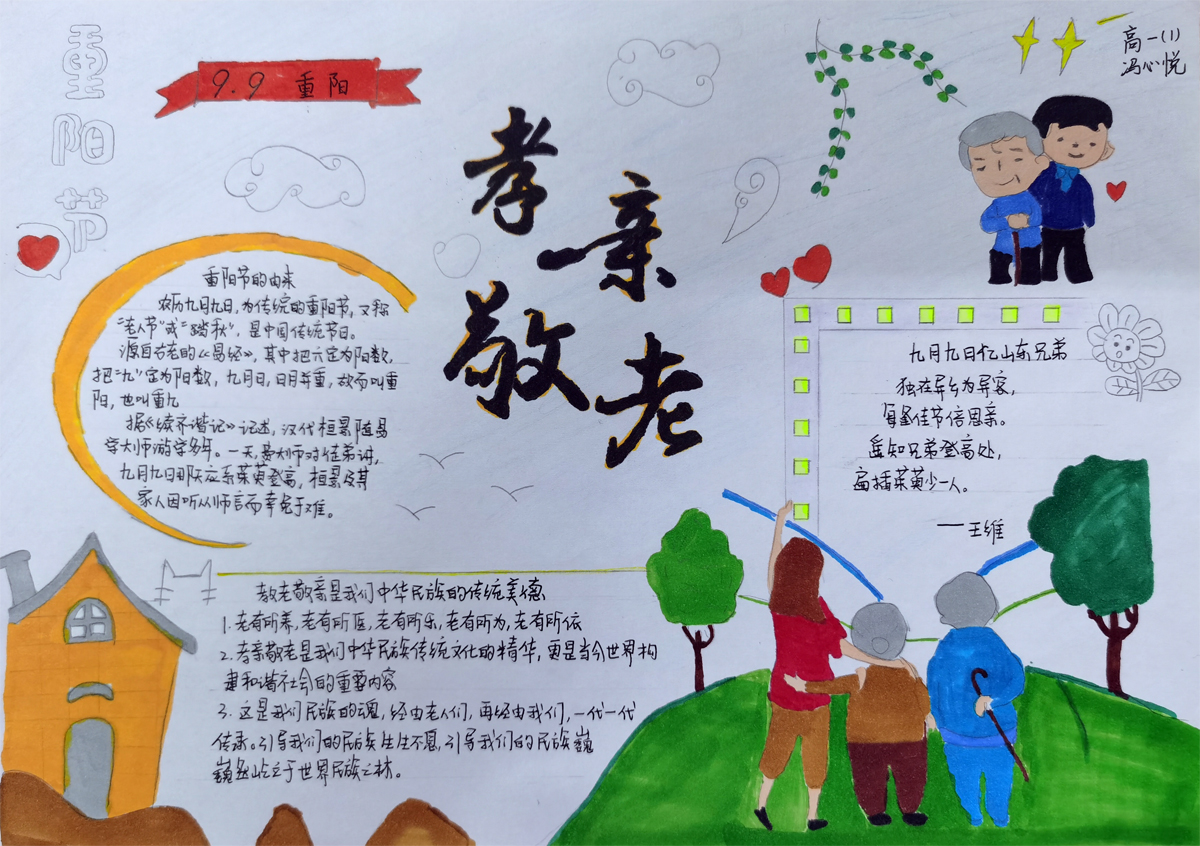 重阳节
9.9 重阳
高一(1)
冯心悦
孝亲敬老
重阳节的由来
农历九月九日,为传统的重阳节,又称
“老人节”或“踏秋”,是中国传统节日。
源自古老的《易经》,其中把六定为阳数,
把“九”定为阳数,九月日,日月并重,故而叫重
阳,也叫重九
据《续齐谐记》记述,汉代桓景随易
学大师游学多年。一天,费大师对徒弟讲,
九月九日那天应系茱萸登高,桓景及其
家人因听从师言而幸免于难。
九月九日忆山东兄弟
独在异乡为异客,
每逢佳节倍思亲。
遥知兄弟登高处,
遍插茱萸少一人。
——王维
敬老敬亲是我们中华民族的传统美德
1.老有所养,老有所医,老有所乐,老有所为,老有所依
2.孝亲敬老是我们中华民族传统文化的精华,更是当今世界构
建和谐社会的重要内容
3.这是我们民族的魂,经由老人们,再经由我们,一代一代
传承。引导我们的民族生生不息,引导我们的民族巍
巍然屹立于世界民族之林。